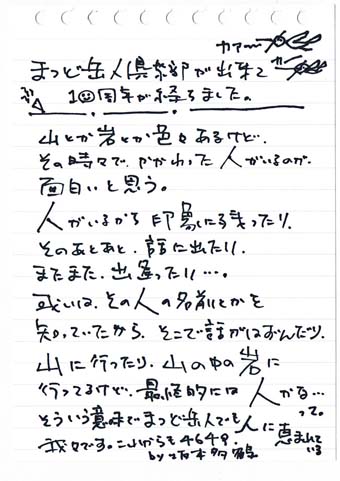 まつど岳人倶楽部が出来て
10周年が経ちました。
山とか岩とか色々あるけど、
その時々で、かかわった人がいるのが、
面白いと思う。
人がいるから印象に残ったり、
そのあとあと、話に出たり、
またまた、出逢ったり…。
或いは、その人の名前とかを
知っていたから、そこで話がはずんだり、
山に行ったり、山の中の岩に
行ってるけど、最終的には人かな…って。
そういう意味でまつど岳人でも人に恵まれている
我々です。これからも4649
by 坂本多鶴